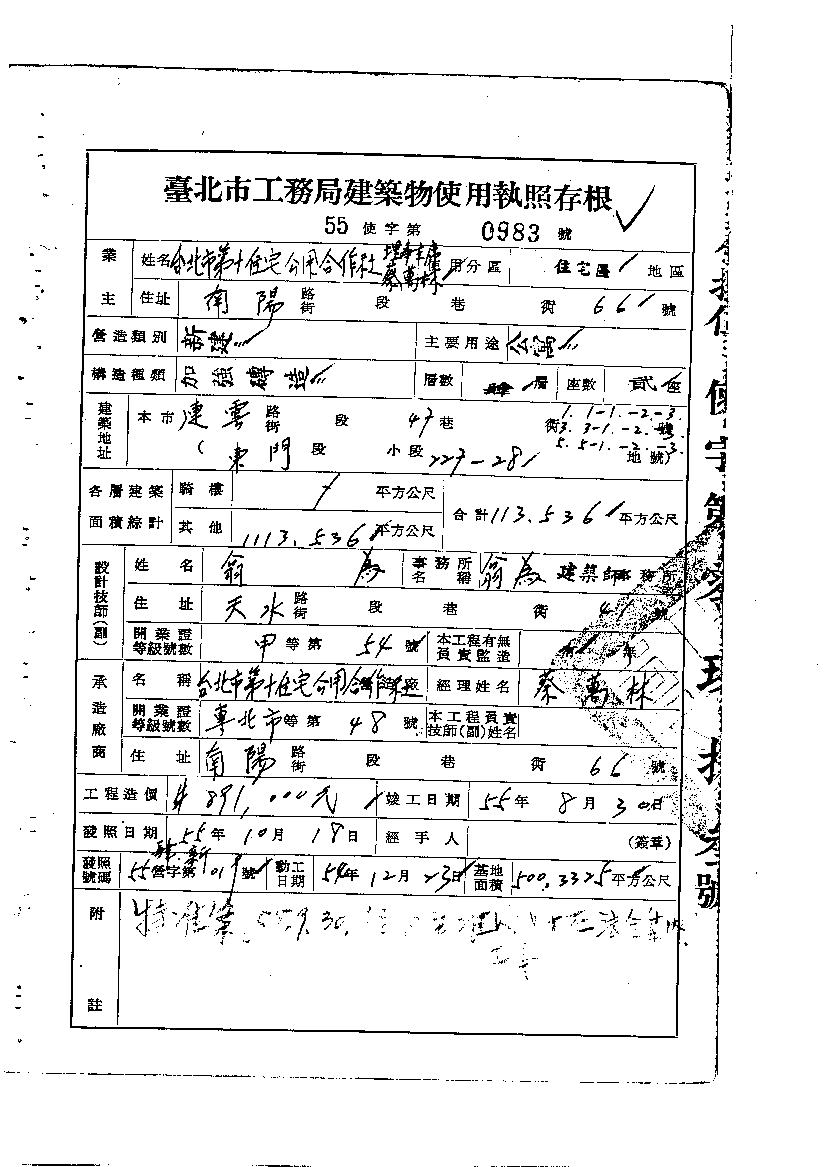 臺北市工務局建築物使用執照存根
55 使字第 0983 號
業主 姓名 台北市第十住宅公用合作社 理事主席 蔡萬林 用分區 住宅區 地區
住址 南陽 路街 段 巷 衖 66 號
營造類別 新建 主要用途 公寓
構造種類 加強磚造 層數 肆層 座數 貳座
建築地址 本市 連雲 路街 段 47巷 衖 1.1-1.-2.-3. 3.3-1.-2. 5.5-1.-2.-3. 號
(東門 段 小段 227-28 地號)
各層建築面積綜計 騎樓 / 平方公尺 合計 1113.536 平方公尺
其他 1113.536 平方公尺
設計技師(副) 姓名 翁為 事務所名稱 翁為建築師事務所
住址 天水 路街 段 巷 衖 4 號
開業證等級號數 甲等第 54 號 本工程有無負責監造
承造廠商 名稱 台北市第十住宅公用合作社 經理姓名 蔡萬林
開業證等級號數 臺北市等第 48 號 本工程負責技師(副)姓名
住址 南陽 路街 段 巷 衖 66 號
工程造價 # 891,000元 竣工日期 55年 8月 30日
發照日期 55年 10月 18日 經手人 (簽章)
發照號碼 55營字第 019 號 動工日期 54年 12月 23日 基地面積 500.3325 平方公尺
附註 特准案 55.9.30.